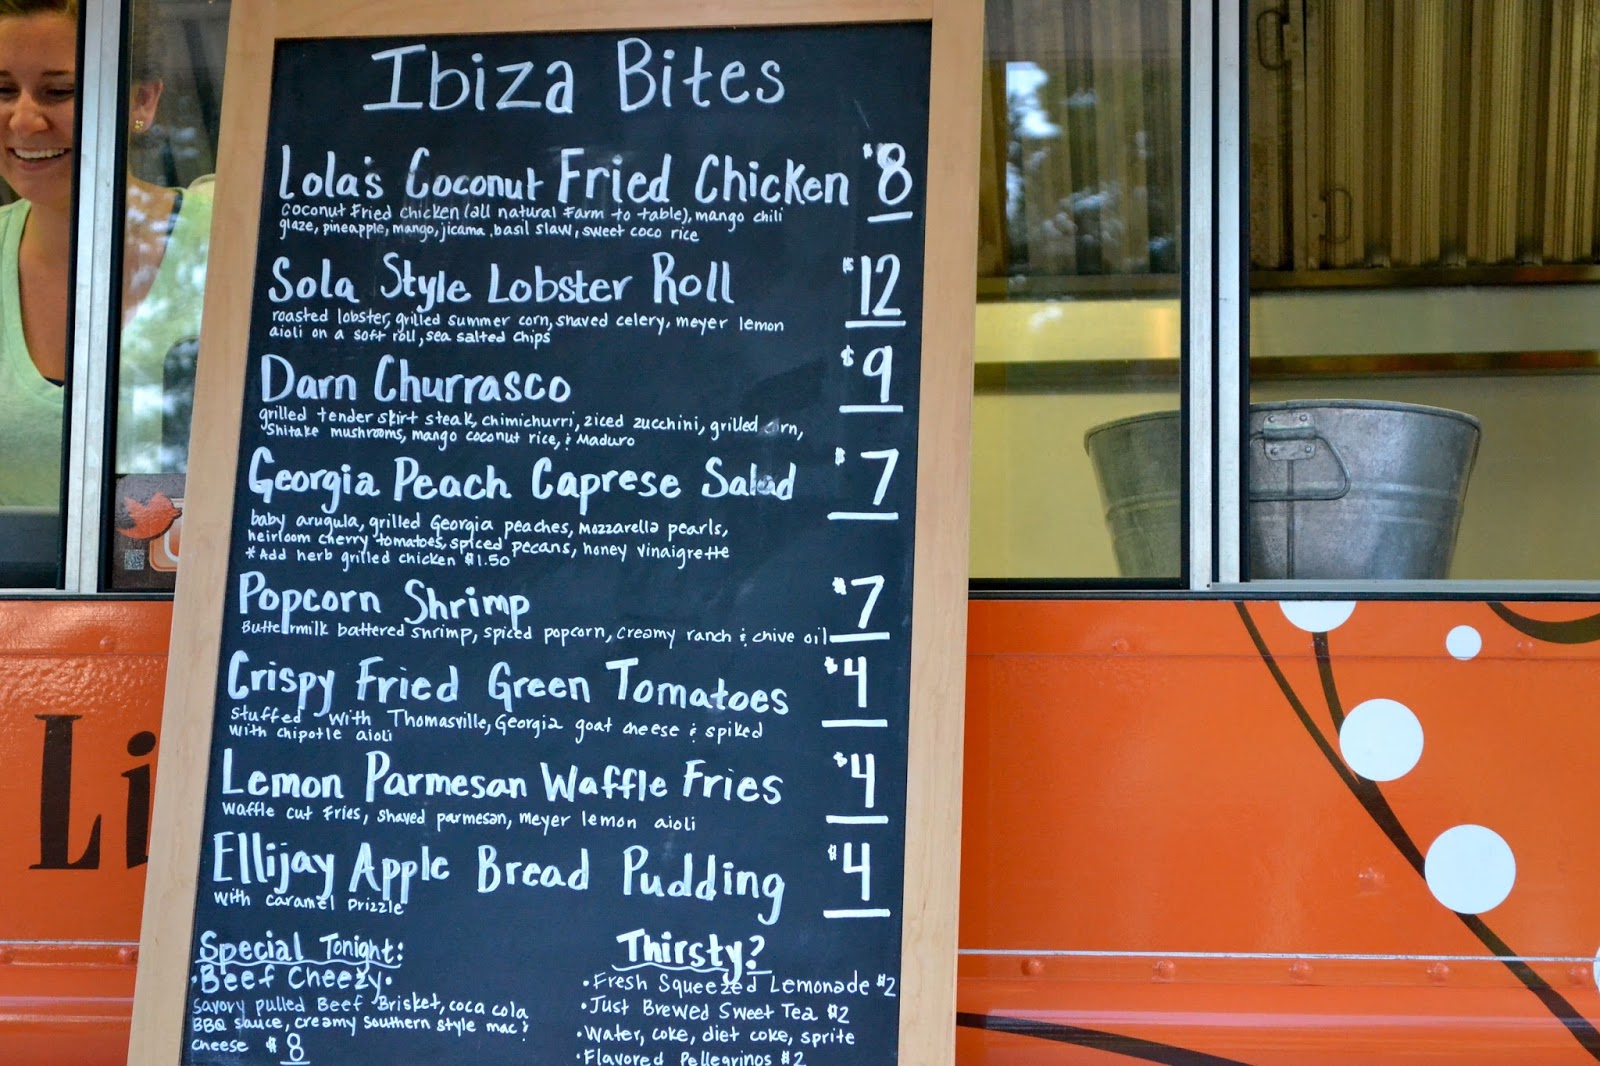 Ibiza Bites
Lola's Coconut Fried Chicken $8
coconut fried chicken (all natural farm to table), mango chili
glaze, pineapple, mango, jicama, basil slaw, sweet coco rice
Sola Style Lobster Roll $12
roasted lobster, grilled summer corn, shaved celery, meyer lemon
aioli on a soft roll, sea salted chips
Darn Churrasco $9
grilled tender skirt steak, chimichurri, ziced zucchini, grilled corn,
Shitake mushrooms, mango coconut rice, & Maduro
Georgia Peach Caprese Salad $7
baby arugula, grilled Georgia peaches, mozzarella pearls,
heirloom cherry tomatoes, spiced pecans, honey vinaigrette
*Add herb grilled chicken $1.50
Popcorn Shrimp $7
Buttermilk battered shrimp, spiced popcorn, creamy ranch & chive oil
Crispy Fried Green Tomatoes $4
Stuffed with Thomasville, Georgia goat cheese & spiked
with chipotle aioli
Lemon Parmesan Waffle Fries $4
Waffle cut Fries, shaved parmesan, meyer lemon aioli
Ellijay Apple Bread Pudding $4
with caramel Drizzle
Special Tonight:
•Beef Cheezy•
Savory pulled Beef Brisket, coca cola
BBQ sauce, creamy Southern style mac &
cheese $8
Thirsty?
•Fresh Squeezed Lemonade $2
•Just Brewed Sweet Tea $2
•Water, coke, diet coke, sprite
•Flavored Pellegrinos $2
Li